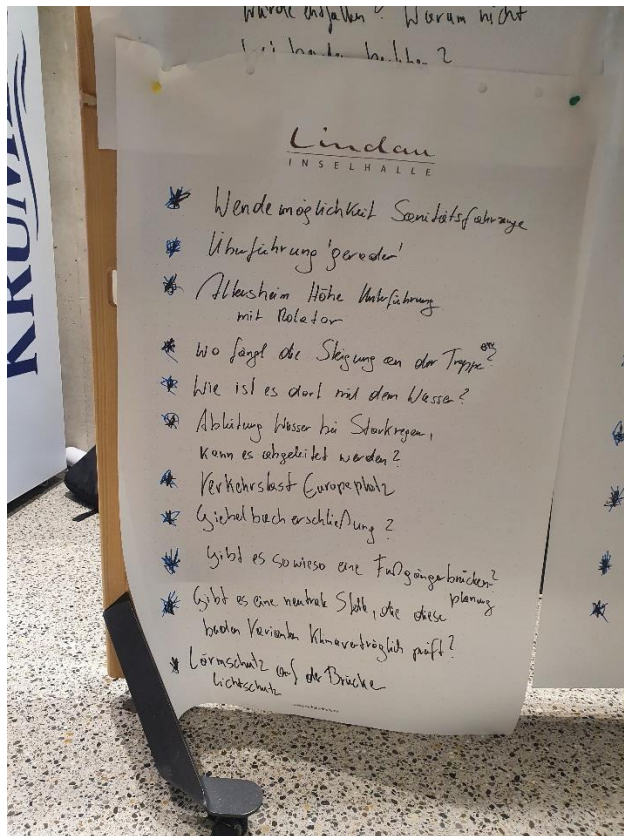 würde entfallen? Warum nicht
bei beiden
KRUM
Lindau
INSELHALLE
Wendemöglichkeit Sanitätsfahrzeuge
Überführung 'gerader'
Altersheim Höhe Unterführung
mit Rolator
Wo fängt die Steigung an der Treppe an?
Wie ist es dort mit dem Wasser?
Ableitung Wasser bei Starkregen,
kann es abgeleitet werden?
Verkehrslast Europaplatz
Giebelbacherschließung?
Gibt es sowieso eine Fußgängerbrücken-?
planung
Gibt es eine neutrale Stelle, die diese
beiden Varianten Klimaverträglich prüft?
Lärmschutz auf der Brücke
Lichtschutz